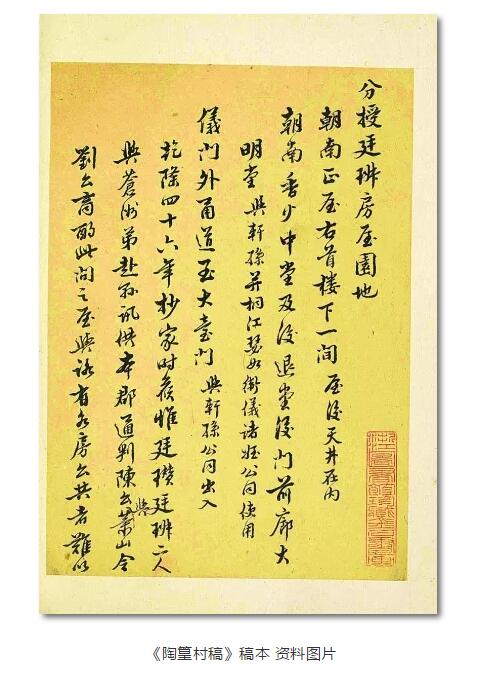 分授廷珊房屋園地
朝南正屋右首楼下一间 屋後天井在内
朝南香火中堂及後退堂後門前廊大
明堂 與軒孫并桐江瑟如衡儀諸姪公同使用
儀門外甬道至大臺門 與軒孫公同出入
乾隆四十六年抄家時候惟廷瓚廷珊二人
與蒼洲弟赴訊供本郡通判陳公與萧山令
劉公商酌此间之屋與有各房公共者難以
《陶篁村稿》稿本 资料图片